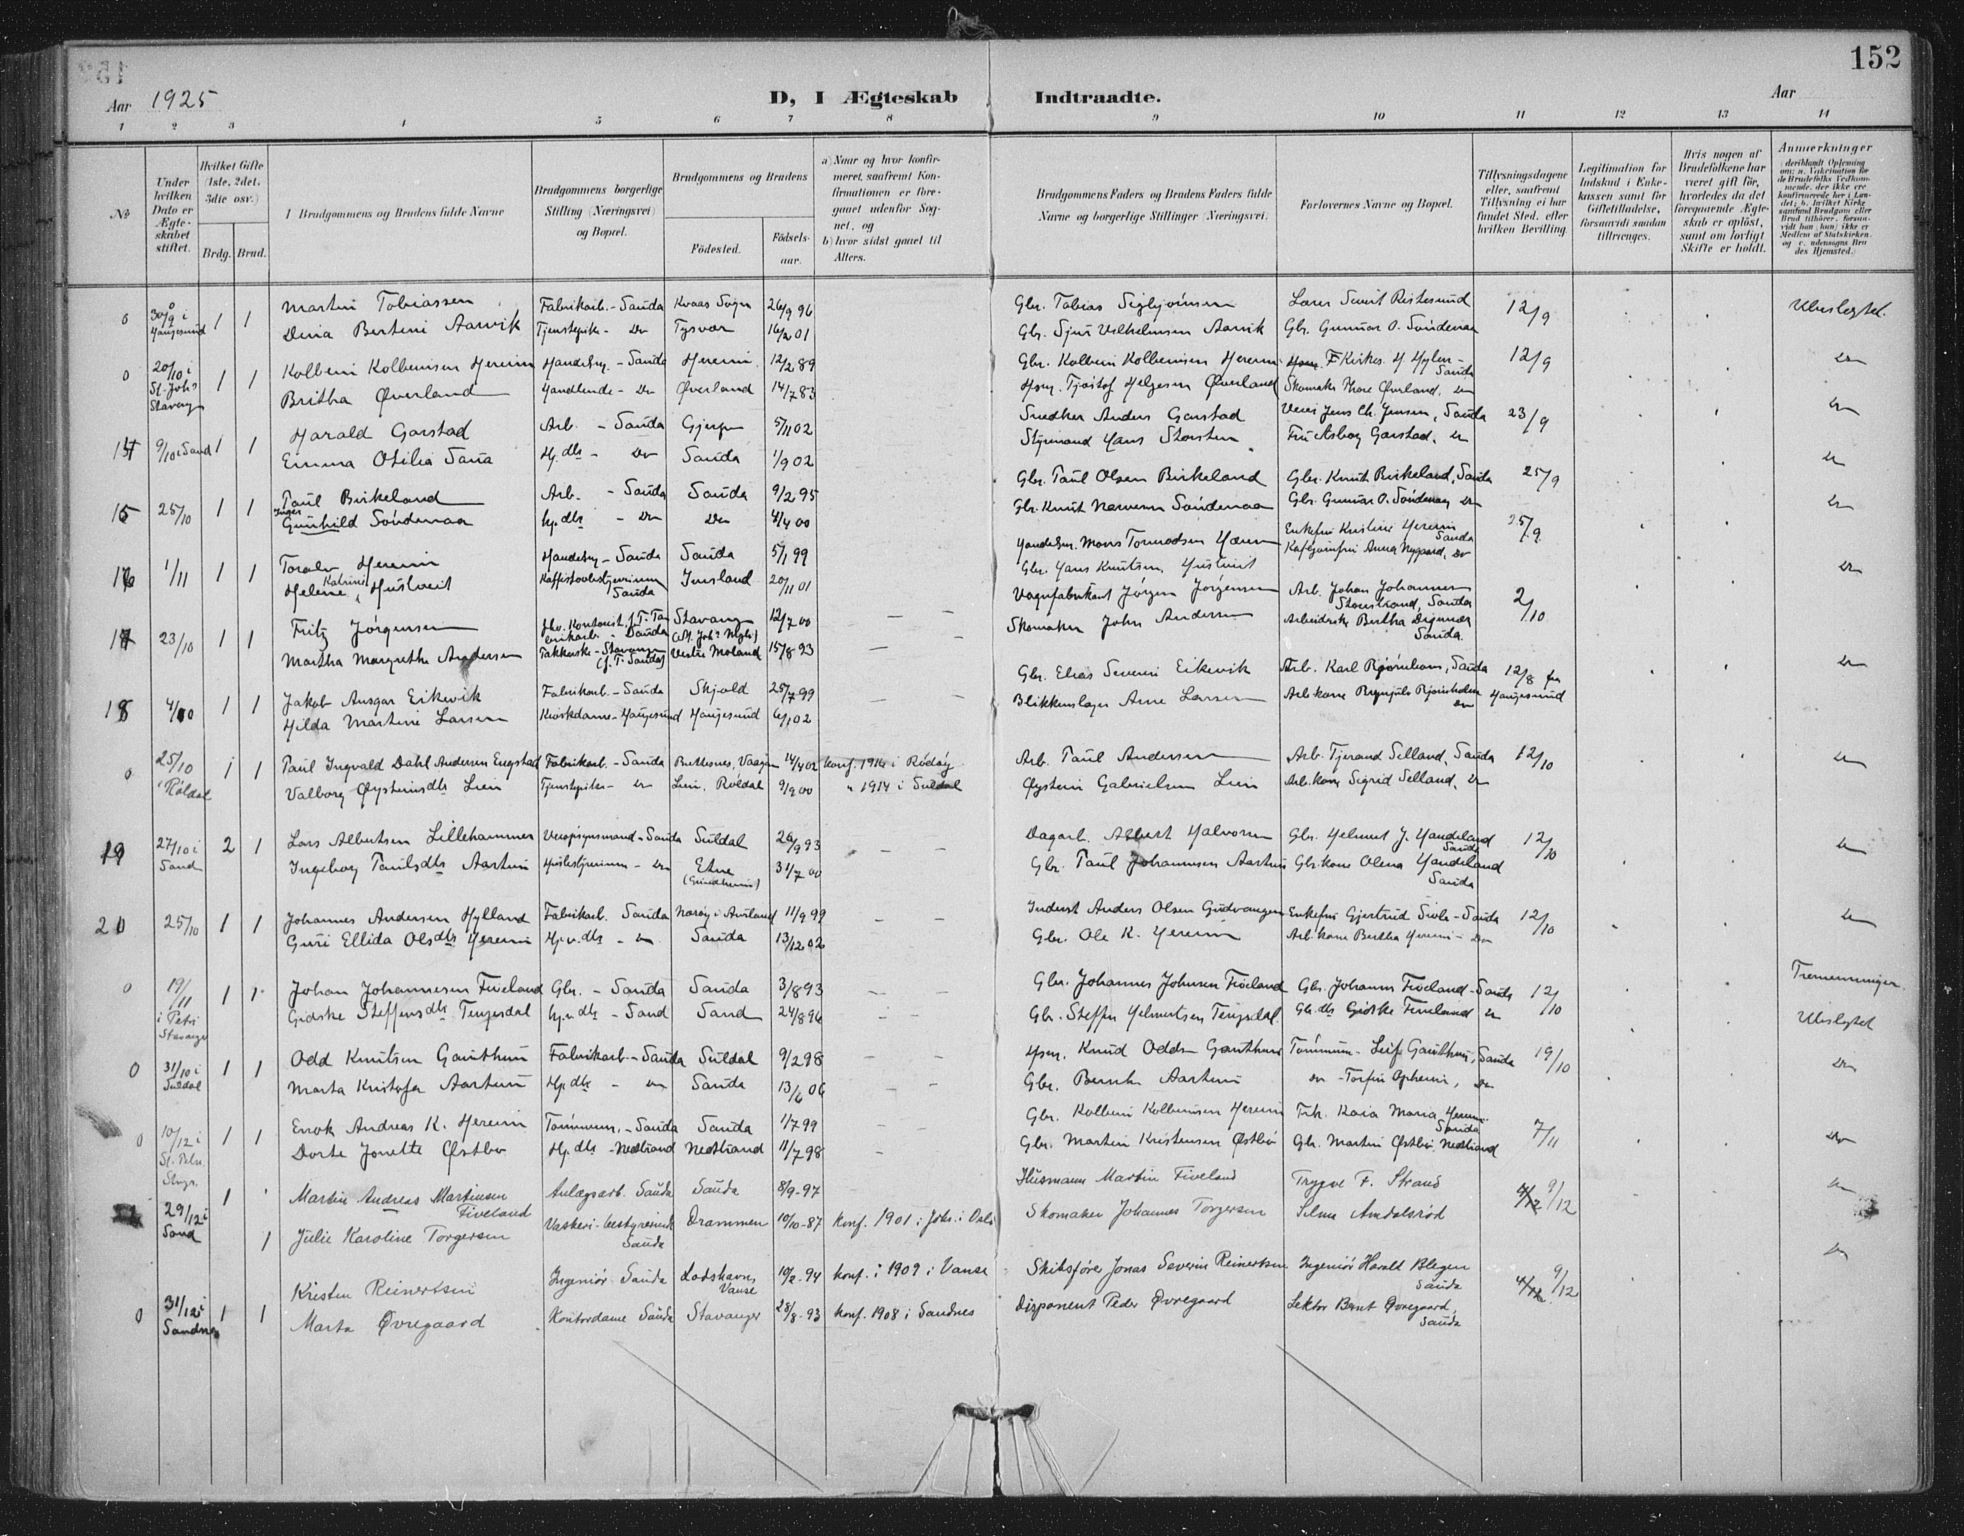 152
Aar 1925 D, I Ægteskab Indtraadte. Aar
1 2 3 4 5 6 7 8 9 10 11 12 13 14
No
Under hvilken Dato er Ægteskabet stiftet.
Hvilket Gifte (1ste, 2det, 3die osv.)
Brdg. Brud.
Brudgommens og Brudens fulde Navne
Brudgommens borgerlige Stilling (Næringsvei) og Bopæl.
Brudgommens og Brudens
Fødested. Fødselsaar.
a) Naar og hvor konfirmeret, saafremt Konfirmationen er foregaaet udenfor Sognet, og
b) hvor sidst gaaet til Alters.
Brudgommens Faders og Brudens Faders fulde Navne og borgerlige Stillinger (Næringsvei).
Forlovernes Navne og Bopæl.
Tillysningsdagene eller, saafremt Tillysning ei har fundet Sted, efter hvilken Bevilling.
Legitimation for Indskud i Enkekassen samt for Giftetilladelse, forsaavidt saadan tiltrænges.
Hvis nogen af Brudefolkene har været gift før, hvorledes da det foregaaende Ægteskab er opløst, samt om lovligt Skifte er holdt.
Anmerkninger
0 30/9 i Haugesund 1 1 Martin Tobiassen Fabrikarb. - Sauda Kvaas Sogn 26/9 96 Gbr. Tobias Sigbjørnsen 12/9 Ubeslegtet.
Dina Bertini Aarvik Tjenstepike - Do Tysvær 16/2 01 Gbr. Sjur Vilhelmsen Aarvik Gbr. Gunnar O. Söndenaa
0 20/10 i St. Johs Stavanger 1 1 Kolbein Kolbeinsen Hereim Handelsm. - Sauda Hereim 12/2 89 Gbr. Kolbein Kolbeinsen Hereim Sauda 12/9 Do
Britha Øverland Handlende - Do Øverland 14/7 83 Hsm. Tjostof Helgesen Øverland Skomaker Thore Øverland, Do
14 9/10 i Sand 1 1 Harald Garstad Arb. - Sauda 5/11 02 Snedker Anders Garstad Jens Ch. Jensen, Sauda 23/9 Do
Emma Otilia Saua Hj. dtr - Do Sauda 1/9 02 Styrmand Hans Fru Garstad, Do
15 25/10 1 1 Paul Birkeland Arb. - Sauda Sauda 9/2 95 Gbr. Paul Olsen Birkeland Gbr. Knut Birkeland, Sauda 25/9 Do
Inger Gunhild Söndenaa hj. dtr - Do Do 4/4 00 Gbr. Knut Söndenaa Gbr. Gunnar O. Söndenaa Do
16 1/11 1 1 Toralv Hereim Handelsm - Sauda Sauda 5/1 99 Handelsm. Mons Tormodsen Enkefru Kristine Hereim Sauda 25/9 Do
Helene Katrine Hustveit Sauda Imsland 20/11 01 Gbr. Hans Knutsen Hustveit Anna Nygaard, Do
17 23/10 1 1 Fritz Jørgensen Sauda Stavanger 12/7 00 Vognfabrikant Jørgen Jørgensen Arb. Johan Johannesen Sauda 2/10 Do
Martha Margrethe Andersen Stavanger Vestre Moland 15/8 93 Skomaker John Andersen Sauda.
18 4/10 1 1 Jakob Ansgar Eikevik Fabrikarb. - Sauda Skjold 25/7 99 Gbr. Elias Severin Eikevik Arb. Karl Bjørnholm, Sauda 12/8 fra Haugesund Do
Hilda Martine Larsen Kioskdame - Haugesund Haugesund 6/1 02 Blikkenslager Arne Larsen Arb.kone Bjørnholm Do
0 25/10 i Röldal 1 1 Paul Ingvald Dahl Andersen Engstad Fabrikarb. - Sauda 14/4 02 konf. 1916 i Rödöy Arb. Paul Andersen Arb. Tjerand Selland, Sauda 12/10 Do
Valborg Øysteinsdtr Lien Tjenstepike - Do Lien, Röldal 9/9 00 " 1914 i Suldal Øystein Gabrielsen Lien Arb.kone Sigrid Selland, Do
19 27/10 i Sand 2 1 Lars Albertsen Lillehammer - Sauda Suldal 26/9 93 Dagarb. Albert Halvorsen Gbr. Helmut J. Handeland Sauda 12/10 Do
Ingeborg Paulsdtr Aartun Do Etne 31/7 00 Gbr. Paul Johannesen Aartun Gbr.kone Olena Handeland Sauda
20 25/10 1 1 Johannes Andersen Hylland Fabrikarb. Sauda 11/9 99 Anders Olsen Gudvangen Enkefru Gjertrud Sivle - Sauda 12/10 Do
Guri Ellida Olsdtr Hereim Hj.v. dtr - Do Sauda 13/12 02 Gbr. Ole K. Hereim Arb. kone Bertha Hereim - Do
0 19/11 i Petri Stavanger 1 1 Johan Johannesen Fiveland Gbr. - Sauda Sauda 3/8 93 Gbr. Johannes Johnsen Fiveland Gbr. Johannes Fiveland - Sauda 12/10 Tremenninger
Gidske Steffensdtr. Tengesdal hj.v dtr - Sand Sand 24/8 96 Gbr. Steffen Helmertsen Tengesdal. Gb. dtr Gidske Fiveland Do Ubeslegtet
0 31/10 i Suldal 1 1 Odd Knutsen Gauthun Fabrikarb. - Sauda Suldal 9/2 98 Hsm. Knud Odds. Gauthun Tömmerm. Leif Gauthun, Sauda 19/10 Do
Marta Kristofa Aartun Hj. dtr - Do Sauda 13/6 06 Gbr. Bernh. Aartun Do - Torfin Opheim, Do
0 10/12 i St. Petri Stvgr. 1 1 Enok Andreas K. Hereim Tömmerm. - Sauda Sauda 1/7 99 Gbr. Kolbein Kolbeinsen Hereim Frk. Kaia Maria Hereim Sauda 7/11 Do
Dorte Jonette Østbø Hj. dtr - Nedstrand Nedstrand 11/7 98 Gbr. Martin Kristensen Østbø Gbr. Martin Østbø, Nedstrand
29/12 i Sand 1 Martin Andreas Martinsen Fiveland Anlægsarb. Sauda Sauda 8/9-97 Husmann Martin Fiveland Trygve F. Strand 9/12 Do
1 Julie Karoline Torgersen Vaskeri-bestyrerinde Sauda Drammen 10/10-87 konf. 1901 i Joh. i Oslo Skomaker Johannes Torgersen Selma Amdalsrød
0 31/12 i Sandnes 1 1 Kristen Reinertsen Ingeniør Sauda Lodshavn, Vanse 10/2-94 konf. i 1909 i Vanse Skibsfører Jonas Severin Reinertsen Ingeniør Harald Blegen Sauda 9/12 Do
Marta Øvregaard Kontordame Sauda Stavanger 28/8-93 konf. 1908 i Sandnes Disponent Peder Øvregaard Lektor Bernt Øvregaard, Sauda